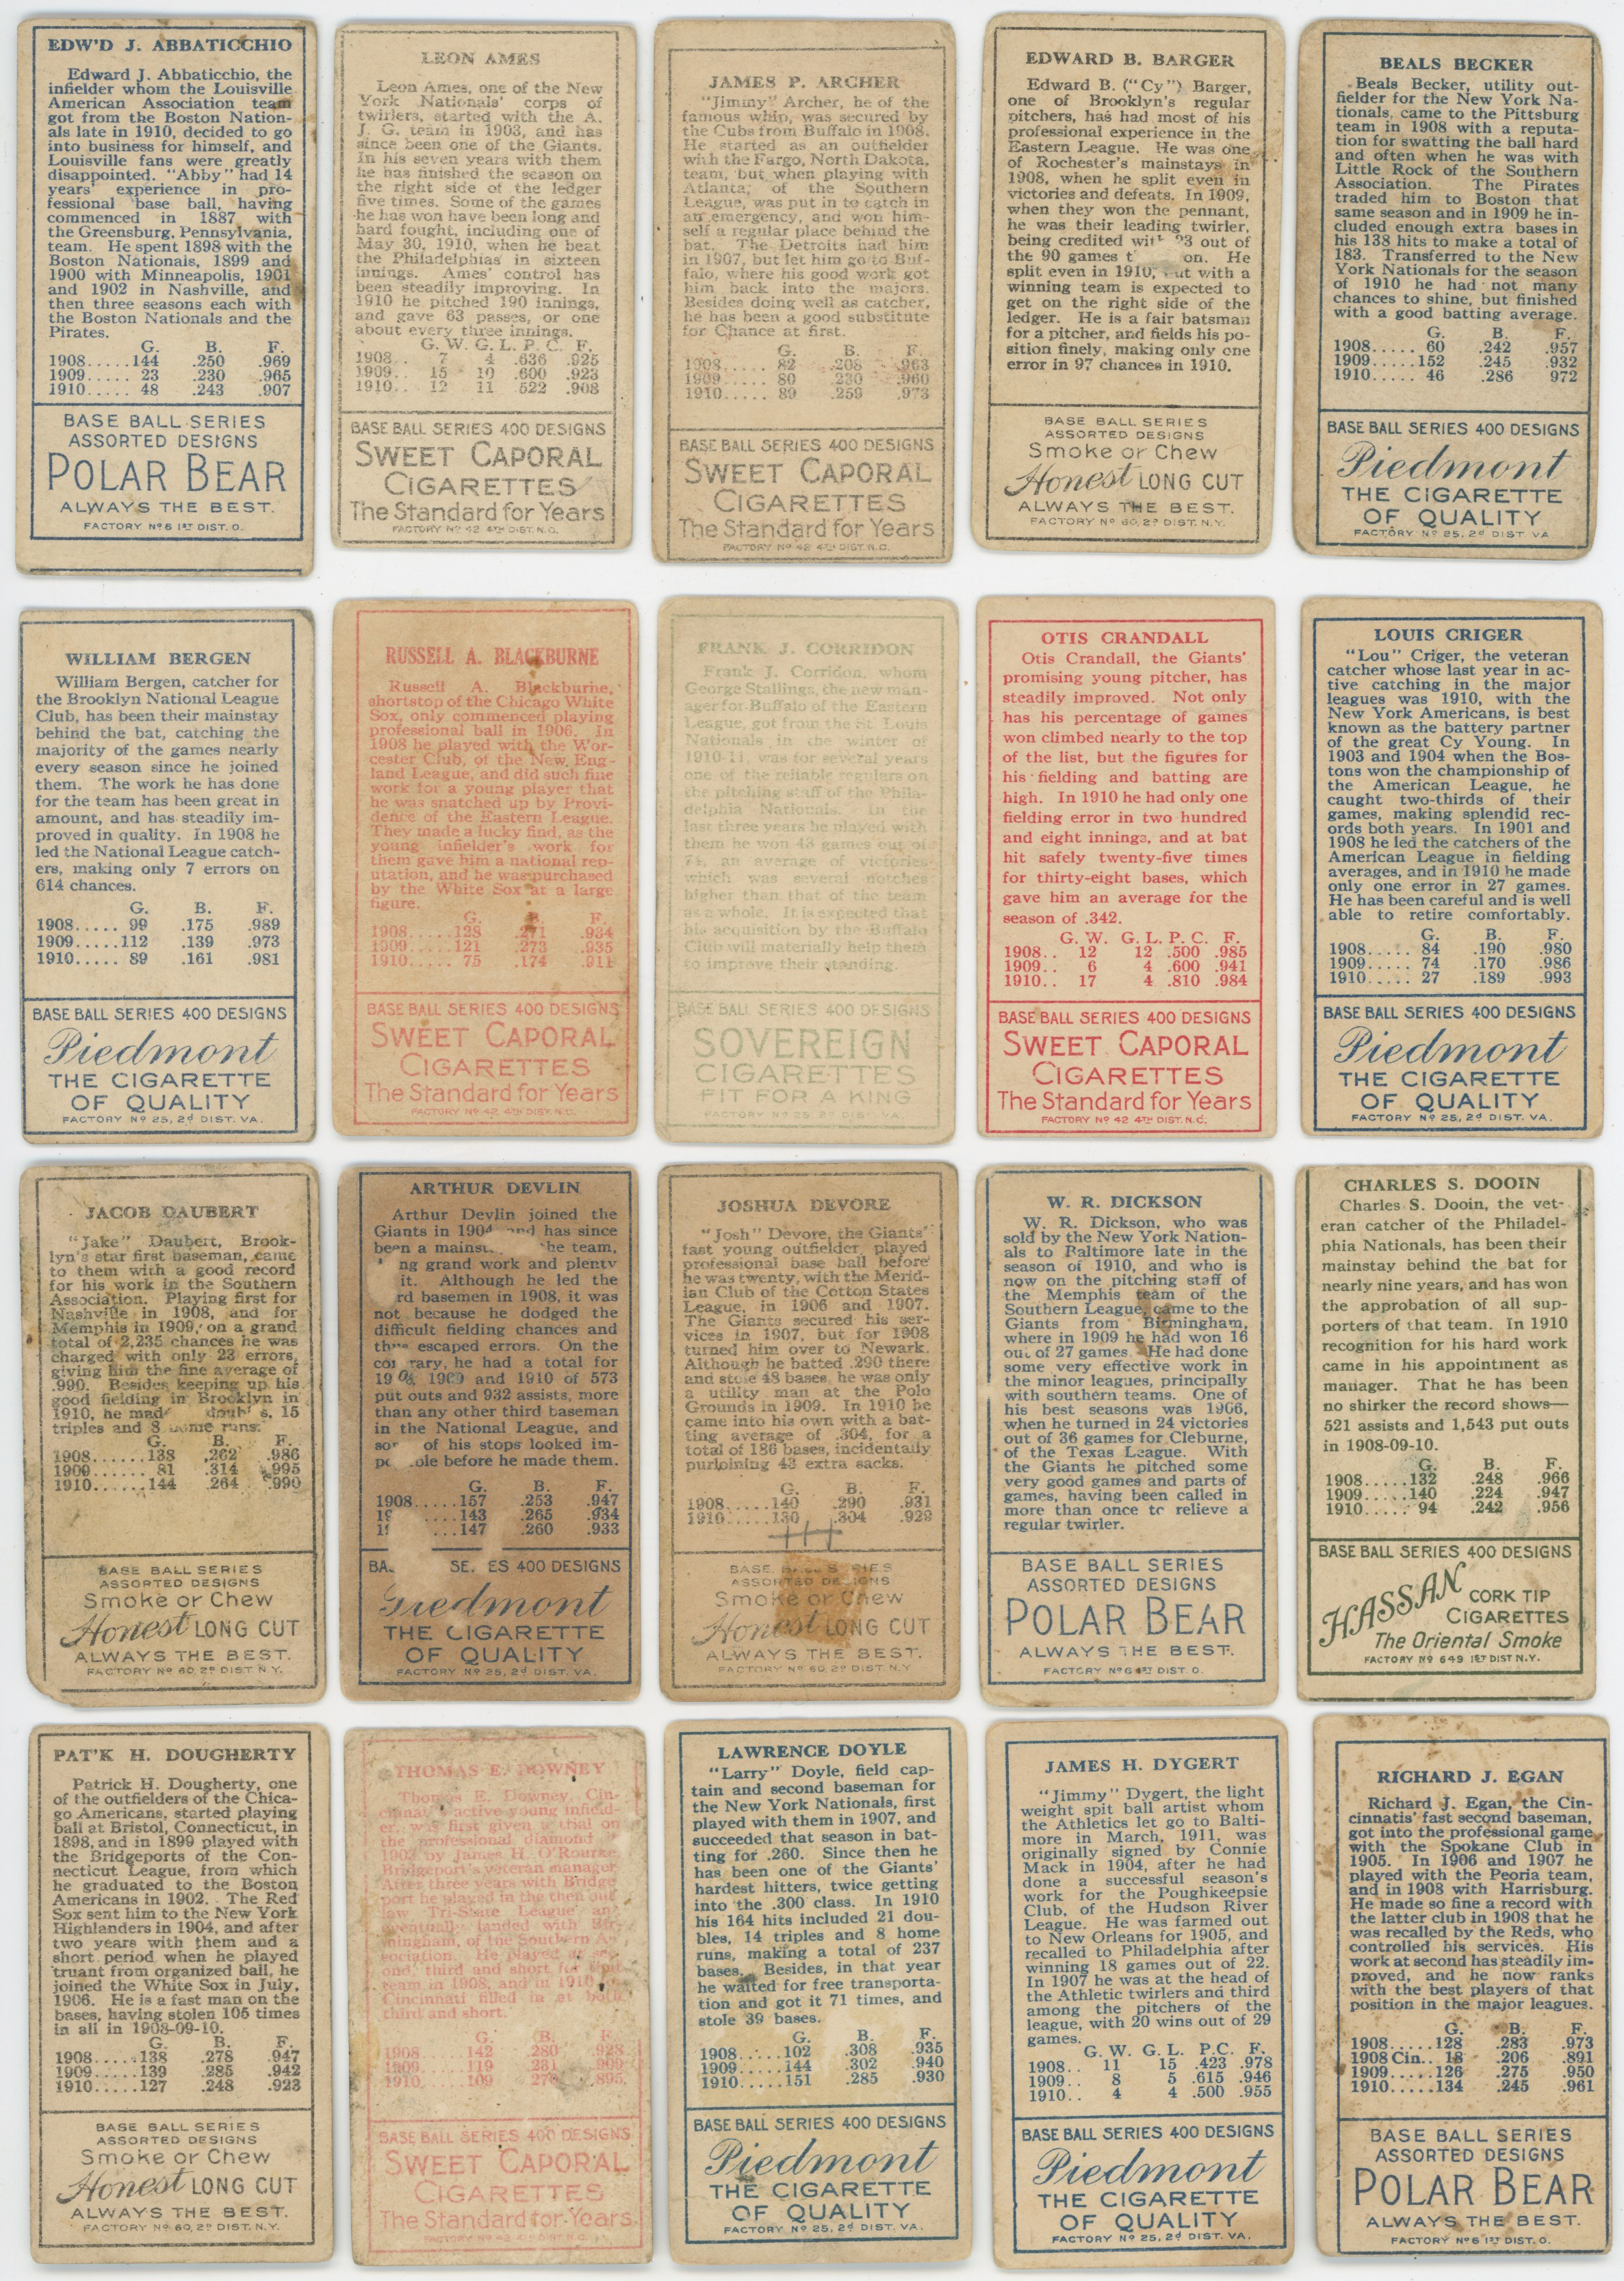 EDW'D J. ABBATICCHIO
Edward J. Abbaticchio, the
infielder whom the Louisville
American Association team
got from the Boston Nation-
als late in 1910, decided to go
into business for himself, and
Louisville fans were greatly
disappointed. "Abby" had 14
years' experience in pro-
fessional base ball, having
commenced in 1887 with
the Greensburg, Pennsylvania,
team. He spent 1898 with the
Boston Nationals, 1899 and
1900 with Minneapolis, 1901
and 1902 in Nashville, and
then three seasons each with
the Boston Nationals and the
Pirates.
G. B. F.
1908.....144 .250 .969
1909..... 23 .230 .965
1910..... 48 .243 .907
BASE BALL SERIES
ASSORTED DESIGNS
POLAR BEAR
ALWAYS THE BEST.
FACTORY Nº 6 1ST DIST. O.
LEON AMES
Leon Ames, one of the New
York Nationals' corps of
twirlers, started with the A.
J. G. team in 1903, and has
since been one of the Giants.
In his seven years with them
he has finished the season on
the right side of the ledger
five times. Some of the games
he has won have been long and
hard fought, including one of
May 30, 1910, when he beat
the Philadelphias in sixteen
innings. Ames' control has
been steadily improving. In
1910 he pitched 190 innings,
and gave 63 passes, or one
about every three innings.
G. W. G. L. P. C. F.
1908.. 7 4 .636 .925
1909.. 15 10 .600 .923
1910.. 12 11 522 .908
BASE BALL SERIES 400 DESIGNS
SWEET CAPORAL
CIGARETTES
The Standard for Years
FACTORY Nº 42 4TH DIST. N.C.
JAMES P. ARCHER
"Jimmy" Archer, he of the
famous whip, was secured by
the Cubs from Buffalo in 1908.
He started as an outfielder
with the Fargo, North Dakota,
team, but when playing with
Atlanta, of the Southern
League, was put in to catch in
an emergency, and won him-
self a regular place behind the
bat. The Detroits had him
in 1907, but let him go to Buf-
falo, where his good work got
him back into the majors.
Besides doing well as catcher,
he has been a good substitute
for Chance at first.
G. B. F.
1908..... 82 .208 .963
1909..... 80 .230 .960
1910..... 89 .259 .973
BASE BALL SERIES 400 DESIGNS
SWEET CAPORAL
CIGARETTES
The Standard for Years
FACTORY Nº 42 4TH DIST. N.C.
EDWARD B. BARGER
Edward B. ("Cy") Barger,
one of Brooklyn's regular
pitchers, has had most of his
professional experience in the
Eastern League. He was one
of Rochester's mainstays in
1908, when he split even in
victories and defeats. In 1909,
when they won the pennant,
he was their leading twirler,
being credited 23 out of
the 90 games on. He
split even in 1910, but with a
winning team is expected to
get on the right side of the
ledger. He is a fair batsman
for a pitcher, and fields his po-
sition finely, making only one
error in 97 chances in 1910.
BASE BALL SERIES
ASSORTED DESIGNS
Smoke or Chew
Honest LONG CUT
ALWAYS THE BEST.
FACTORY Nº 60, 2D DIST. N.Y.
BEALS BECKER
Beals Becker, utility out-
fielder for the New York Na-
tionals, came to the Pittsburg
team in 1908 with a reputa-
tion for swatting the ball hard
and often when he was with
Little Rock of the Southern
Association. The Pirates
traded him to Boston that
same season and in 1909 he in-
cluded enough extra bases in
his 138 hits to make a total of
183. Transferred to the New
York Nationals for the season
of 1910 he had not many
chances to shine, but finished
with a good batting average.
G. B. F.
1908..... 60 .242 .957
1909.....152 .245 .932
1910..... 46 .286 972
BASE BALL SERIES 400 DESIGNS
Piedmont
THE CIGARETTE
OF QUALITY
FACTORY Nº 25, 2d DIST. VA.
WILLIAM BERGEN
William Bergen, catcher for
the Brooklyn National League
Club, has been their mainstay
behind the bat, catching the
majority of the games nearly
every season since he joined
them. The work he has done
for the team has been great in
amount, and has steadily im-
proved in quality. In 1908 he
led the National League catch-
ers, making only 7 errors on
614 chances.
G. B. F.
1908..... 99 .175 .989
1909.....112 .139 .973
1910..... 89 .161 .981
BASE BALL SERIES 400 DESIGNS
Piedmont
THE CIGARETTE
OF QUALITY
FACTORY Nº 25, 2d DIST. VA.
RUSSELL A. BLACKBURNE
Russell A. Blackburne,
shortstop of the Chicago White
Sox, only commenced playing
professional ball in 1906. In
1908 he played with the Wor-
cester Club, of the New Eng-
land League, and did such fine
work for a young player that
he was snatched up by Provi-
dence of the Eastern League.
They made a lucky find, as the
young infielder's work for
them gave him a national rep-
utation, and he was purchased
by the White Sox at a large
figure.
G. B. F.
1908.....128 .271 .934
1909.....121 .273 .935
1910..... 75 .174 .911
BASE BALL SERIES 400 DESIGNS
SWEET CAPORAL
CIGARETTES
The Standard for Years
FACTORY Nº 42 4TH DIST. N.C.
FRANK J. CORRIDON
Frank J. Corridon, whom
George Stallings, the new man-
ager for Buffalo of the Eastern
League, got from the St. Louis
Nationals in the winter of
1910-11, was for several years
one of the reliable regulars on
the pitching staff of the Phila-
delphia Nationals. In the
last three years he played with
them he won 43 games out of
an average of victories
which was several notches
higher than that of the team
as a whole. It is expected that
his acquisition by the Buffalo
Club will materially help them
to improve their standing.
BASE BALL SERIES 400 DESIGNS
SOVEREIGN
CIGARETTES
FIT FOR A KING
FACTORY Nº 25 2D DIST. VA.
OTIS CRANDALL
Otis Crandall, the Giants'
promising young pitcher, has
steadily improved. Not only
has his percentage of games
won climbed nearly to the top
of the list, but the figures for
his fielding and batting are
high. In 1910 he had only one
fielding error in two hundred
and eight innings, and at bat
hit safely twenty-five times
for thirty-eight bases, which
gave him an average for the
season of .342.
G. W. G. L. P. C. F.
1908.. 12 12 .500 .985
1909.. 6 4 .600 .941
1910.. 17 4 .810 .984
BASE BALL SERIES 400 DESIGNS
SWEET CAPORAL
CIGARETTES
The Standard for Years
FACTORY Nº 42 4TH DIST. N.C.
LOUIS CRIGER
"Lou" Criger, the veteran
catcher whose last year in ac-
tive catching in the major
leagues was 1910, with the
New York Americans, is best
known as the battery partner
of the great Cy Young. In
1903 and 1904 when the Bos-
tons won the championship of
the American League, he
caught two-thirds of their
games, making splendid rec-
ords both years. In 1901 and
1908 he led the catchers of the
American League in fielding
averages, and in 1910 he made
only one error in 27 games.
He has been careful and is well
able to retire comfortably.
G. B. F.
1908..... 84 .190 .980
1909..... 74 .170 .986
1910..... 27 .189 .993
BASE BALL SERIES 400 DESIGNS
Piedmont
THE CIGARETTE
OF QUALITY
FACTORY Nº 25, 2d DIST. VA.
JACOB DAUBERT
"Jake" Daubert, Brook-
lyn's star first baseman, came
to them with a good record
for his work in the Southern
Association. Playing first for
Nashville in 1908, and for
Memphis in 1909, on a grand
total of 2,235 chances he was
charged with only 23 errors,
giving him the fine average of
.990. Besides keeping up his
good fielding in Brooklyn in
1910, he made 15
triples and 8 home runs.
G. B. F.
1908......138 .262 .986
1909...... 81 .314 .995
1910......144 .264 .990
BASE BALL SERIES
ASSORTED DESIGNS
Smoke or Chew
Honest LONG CUT
ALWAYS THE BEST.
FACTORY Nº 60 2D DIST N.Y.
ARTHUR DEVLIN
Arthur Devlin joined the
Giants in 1904 and has since
been a the team,
grand work and plenty
it. Although he led the
basemen in 1908, it was
not because he dodged the
difficult fielding chances and
thus escaped errors. On the
he had a total for
1909 and 1910 of 573
put outs and 932 assists, more
than any other third baseman
in the National League, and
of his stops looked im-
before he made them.
G. B. F.
1908.....157 .253 .947
.....143 .265 .934
.....147 .260 .933
400 DESIGNS
Piedmont
THE CIGARETTE
OF QUALITY
FACTORY Nº 25, 2d DIST. VA.
JOSHUA DEVORE
"Josh" Devore, the Giants'
fast young outfielder, played
professional base ball before
he was twenty, with the Merid-
ian Club of the Cotton States
League, in 1906 and 1907.
The Giants secured his ser-
vices in 1907, but for 1908
turned him over to Newark.
Although he batted .290 there
and stole 48 bases, he was only
a utility man at the Polo
Grounds in 1909. In 1910 he
came into his own with a bat-
ting average of .304, for a
total of 186 bases, incidentally
purloining 43 extra sacks.
G. B. F.
1908.....140 .290 .931
1910.....130 .304 .929
BASE BALL SERIES
ASSORTED DESIGNS
Smoke or Chew
Honest LONG CUT
ALWAYS THE BEST.
FACTORY Nº 60, 2D DIST. N.Y.
W. R. DICKSON
W. R. Dickson, who was
sold by the New York Nation-
als to Baltimore late in the
season of 1910, and who is
now on the pitching staff of
the Memphis team of the
Southern League, came to the
Giants from Birmingham,
where in 1909 he had won 16
out of 27 games. He had done
some very effective work in
the minor leagues, principally
with southern teams. One of
his best seasons was 1906,
when he turned in 24 victories
out of 36 games for Cleburne,
of the Texas League. With
the Giants he pitched some
very good games and parts of
games, having been called in
more than once to relieve a
regular twirler.
BASE BALL SERIES
ASSORTED DESIGNS
POLAR BEAR
ALWAYS THE BEST.
FACTORY Nº 6 1ST DIST. O.
CHARLES S. DOOIN
Charles S. Dooin, the vet-
eran catcher of the Philadel-
phia Nationals, has been their
mainstay behind the bat for
nearly nine years, and has won
the approbation of all sup-
porters of that team. In 1910
recognition for his hard work
came in his appointment as
manager. That he has been
no shirker the record shows—
521 assists and 1,543 put outs
in 1908-09-10.
G. B. F.
1908.....132 .248 .966
1909.....140 .224 .947
1910..... 94 .242 .956
BASE BALL SERIES 400 DESIGNS
HASSAN CORK TIP
CIGARETTES
The Oriental Smoke
FACTORY Nº 649 1ST DIST N.Y.
PAT'K H. DOUGHERTY
Patrick H. Dougherty, one
of the outfielders of the Chica-
go Americans, started playing
ball at Bristol, Connecticut, in
1898, and in 1899 played with
the Bridgeports of the Con-
necticut League, from which
he graduated to the Boston
Americans in 1902. The Red
Sox sent him to the New York
Highlanders in 1904, and after
two years with them and a
short period when he played
truant from organized ball, he
joined the White Sox in July,
1906. He is a fast man on the
bases, having stolen 105 times
in all in 1908-09-10.
G. B. F.
1908.....138 .278 .947
1909.....139 .285 .942
1910.....127 .248 .923
BASE BALL SERIES
ASSORTED DESIGNS
Smoke or Chew
Honest LONG CUT
ALWAYS THE BEST.
FACTORY Nº 60, 2D DIST. N.Y.
THOMAS E. DOWNEY
Thomas E. Downey, Cin-
active young infield-
er, was first given a trial on
the professional diamond
by James H. O'Rourke,
Bridgeport's veteran manager.
After three years with Bridge
port he played in the then out
law Tri-State League and
eventually landed with Bir-
mingham, of the Southern As-
sociation. He played
third and short for that
team in 1908, and in 1910
Cincinnati filled in at both
third and short.
G. B. F.
1908.....142 .280 .928
1909.....119 .231 .909
1910.....109 .895
BASE BALL SERIES 400 DESIGNS
SWEET CAPORAL
CIGARETTES
The Standard for Years
LAWRENCE DOYLE
"Larry" Doyle, field cap-
tain and second baseman for
the New York Nationals, first
played with them in 1907, and
succeeded that season in bat-
ting for .260. Since then he
has been one of the Giants'
hardest hitters, twice getting
into the .300 class. In 1910
his 164 hits included 21 dou-
bles, 14 triples and 8 home
runs, making a total of 237
bases. Besides, in that year
he waited for free transporta-
tion and got it 71 times, and
stole 39 bases.
G. B. F.
1908......102 .308 .935
1909......144 .302 .940
1910......151 .285 .930
BASE BALL SERIES 400 DESIGNS
Piedmont
THE CIGARETTE
OF QUALITY
FACTORY Nº 25, 2d DIST. VA.
JAMES H. DYGERT
"Jimmy" Dygert, the light
weight spit ball artist whom
the Athletics let go to Balti-
more in March, 1911, was
originally signed by Connie
Mack in 1904, after he had
done a successful season's
work for the Poughkeepsie
Club, of the Hudson River
League. He was farmed out
to New Orleans for 1905, and
recalled to Philadelphia after
winning 18 games out of 22.
In 1907 he was at the head of
the Athletic twirlers and third
among the pitchers of the
league, with 20 wins out of 29
games.
G. W. G. L. P.C. F.
1908.. 11 15 .423 .978
1909.. 8 5 .615 .946
1910.. 4 4 .500 .955
BASE BALL SERIES 400 DESIGNS
Piedmont
THE CIGARETTE
OF QUALITY
FACTORY Nº 25, 2d DIST. VA.
RICHARD J. EGAN
Richard J. Egan, the Cin-
cinnatis' fast second baseman,
got into the professional game
with the Spokane Club in
1905. In 1906 and 1907 he
played with the Peoria team,
and in 1908 with Harrisburg.
He made so fine a record with
the latter club in 1908 that he
was recalled by the Reds, who
controlled his services. His
work at second has steadily im-
proved, and he now ranks
with the best players of that
position in the major leagues.
G. B. F.
1908.....128 .283 .973
1908 Cin.. 18 .206 .891
1909.....126 .275 .950
1910.....134 .245 .961
BASE BALL SERIES
ASSORTED DESIGNS
POLAR BEAR
ALWAYS THE BEST.
FACTORY Nº 6 1ST DIST. O.